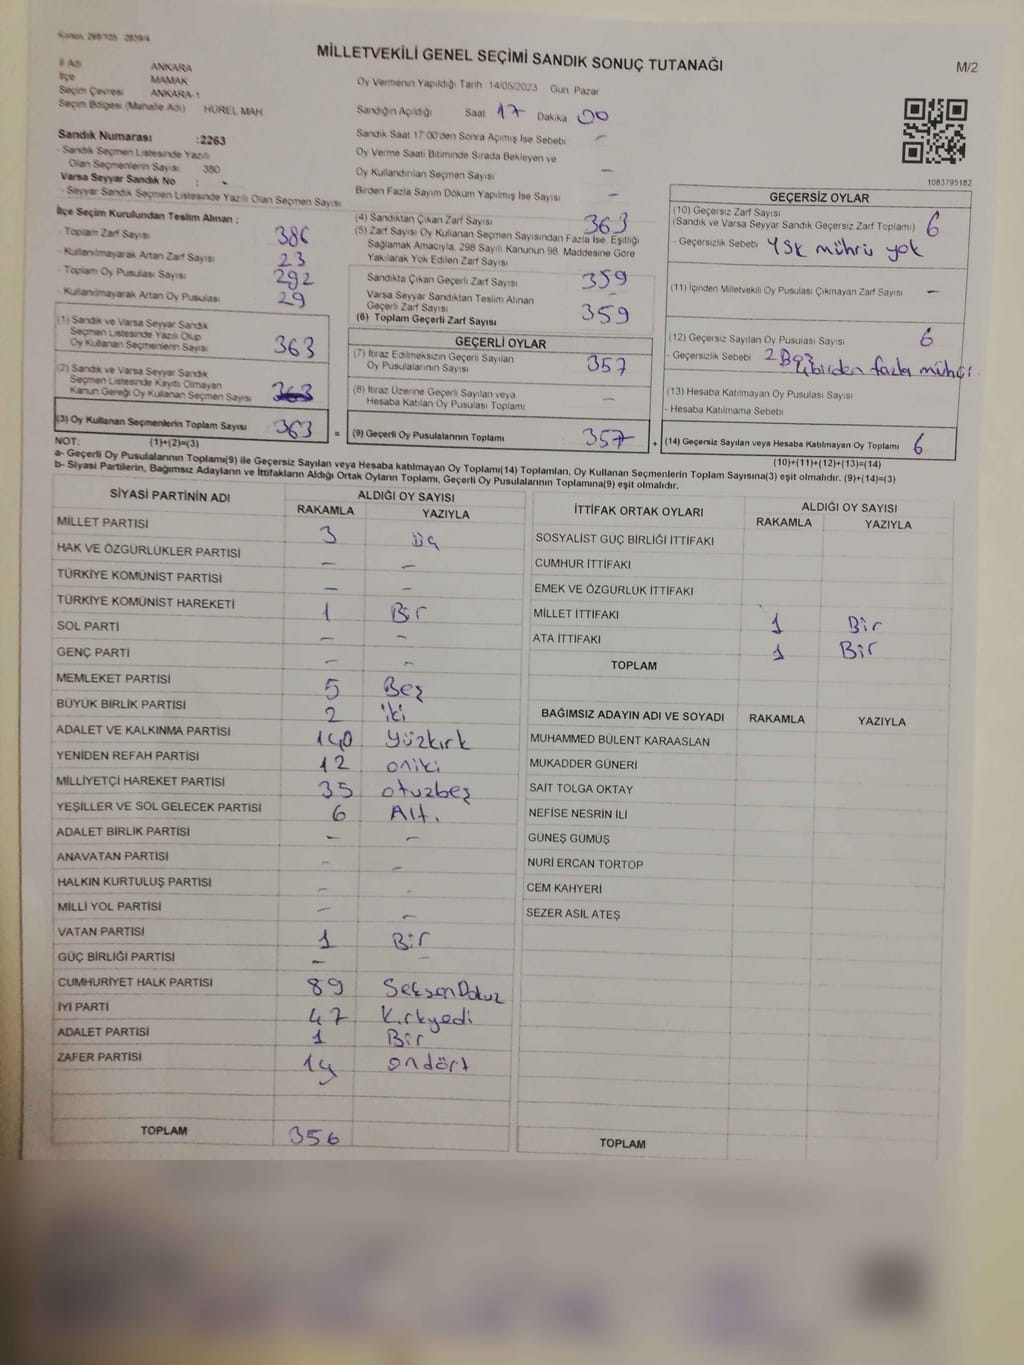 MİLLETVEKİLİ GENEL SEÇİMİ SANDIK SONUÇ TUTANAĞI
M/2
İl Adı ANKARA
İlçe MAMAK
Seçim Çevresi ANKARA-1
Seçim Bölgesi (Mahalle Adı) HÜREL MAH
Sandık Numarası :2263
- Sandık Seçmen Listesinde Yazılı
Olan Seçmenlerin Sayısı 380
Varsa Seyyar Sandık No : -
- Seyyar Sandık Seçmen Listesinde Yazılı Olan Seçmen Sayısı
Oy Vermenin Yapıldığı Tarih 14/05/2023 Gün Pazar
Sandığın Açıldığı Saat 17 Dakika 00
Sandık Saat 17:00'den Sonra Açımış İse Sebebi -
Oy Verme Saati Bitiminde Sırada Bekleyen ve
Oy Kullandırılan Seçmen Sayısı -
Birden Fazla Sayım Döküm Yapılmış İse Sayısı -
1083795182
İlçe Seçim Kurulundan Teslim Alınan :
- Toplam Zarf Sayısı 386
- Kullanılmayarak Artan Zarf Sayısı 23
- Toplam Oy Pusulası Sayısı 292
- Kullanılmayarak Artan Oy Pusulası 29
(1) Sandık ve Varsa Seyyar Sandık
Seçmen Listesinde Yazılı Olup
Oy Kullanan Seçmenlerin Sayısı 363
(2) Sandık ve Varsa Seyyar Sandık
Seçmen Listesinde Kayıtlı Olmayan
Kanun Gereği Oy Kullanan Seçmen Sayısı 363
(3) Oy Kullanan Seçmenlerin Toplam Sayısı 363 =
(4) Sandıktan Çıkan Zarf Sayısı 363
(5) Zarf Sayısı Oy Kullanan Seçmen Sayısından Fazla İse, Eşitliği
Sağlamak Amacıyla, 298 Sayılı Kanunun 98. Maddesine Göre
Yakılarak Yok Edilen Zarf Sayısı
Sandıkta Çıkan Geçerli Zarf Sayısı 359
Varsa Seyyar Sandıktan Teslim Alınan
Geçerli Zarf Sayısı
(6) Toplam Geçerli Zarf Sayısı 359
GEÇERLİ OYLAR
(7) İtiraz Edilmeksizin Geçerli Sayılan
Oy Pusulalarının Sayısı 357
(8) İtiraz Üzerine Geçerli Sayılan veya
Hesaba Katılan Oy Pusulası Toplamı -
(9) Geçerli Oy Pusulalarının Toplamı 357 +
GEÇERSİZ OYLAR
(10) Geçersiz Zarf Sayısı
(Sandık ve Varsa Seyyar Sandık Geçersiz Zarf Toplamı) 6
- Geçersizlik Sebebi YSK mührü yok
(11) İçinden Milletvekili Oy Pusulası Çıkmayan Zarf Sayısı -
(12) Geçersiz Sayılan Oy Pusulası Sayısı 6
- Geçersizlik Sebebi 2 birden fazla
(13) Hesaba Katılmayan Oy Pusulası Sayısı
- Hesaba Katılmama Sebebi
(14) Geçersiz Sayılan veya Hesaba Katılmayan Oy Toplamı 6
NOT: (1)+(2)=(3)
(10)+(11)+(12)+(13)=(14)
a- Geçerli Oy Pusulalarının Toplamı(9) ile Geçersiz Sayılan veya Hesaba katılmayan Oy Toplamı(14) Toplamları, Oy Kullanan Seçmenlerin Toplam Sayısına(3) eşit olmalıdır. (9)+(14)=(3)
b- Siyasi Partilerin, Bağımsız Adayların ve İttifakların Aldığı Ortak Oyların Toplamı, Geçerli Oy Pusulalarının Toplamına(9) eşit olmalıdır.
SİYASİ PARTİNİN ADI ALDIĞI OY SAYISI
RAKAMLA YAZIYLA
MİLLET PARTİSI 3 üç
HAK VE ÖZGÜRLÜKLER PARTİSİ - -
TÜRKİYE KOMÜNİST PARTİSİ - -
TÜRKİYE KOMÜNİST HAREKETİ 1 Bir
SOL PARTİ - -
GENÇ PARTİ - -
MEMLEKET PARTİSİ 5 Beş
BÜYÜK BİRLİK PARTİSİ 2 iki
ADALET VE KALKINMA PARTİSİ 140 Yüzkırk
YENİDEN REFAH PARTİSİ 12 oniki
MİLLİYETÇİ HAREKET PARTİSİ 35 otuzbeş
YEŞİLLER VE SOL GELECEK PARTİSİ 6 Altı
ADALET BİRLİK PARTİSİ - -
ANAVATAN PARTİSİ - -
HALKIN KURTULUŞ PARTİSİ - -
MİLLİ YOL PARTİSİ - -
VATAN PARTİSİ 1 Bir
GÜÇ BİRLİĞİ PARTİSİ - -
CUMHURİYET HALK PARTİSİ 89 Seksen Dokuz
İYİ PARTİ 47 Kırkyedi
ADALET PARTİSİ 1 Bir
ZAFER PARTİSİ 14 ondört
TOPLAM 356
İTTİFAK ORTAK OYLARI ALDIĞI OY SAYISI
RAKAMLA YAZIYLA
SOSYALİST GÜÇ BİRLİĞİ İTTİFAKI
CUMHUR İTTİFAKI
EMEK VE ÖZGÜRLÜK İTTİFAKI
MİLLET İTTİFAKI 1 Bir
ATA İTTİFAKI 1 Bir
TOPLAM
BAĞIMSIZ ADAYIN ADI VE SOYADI RAKAMLA YAZIYLA
MUHAMMED BÜLENT KARAASLAN
MUKADDER GÜNERİ
SAİT TOLGA OKTAY
NEFİSE NESRİN İLİ
GÜNEŞ GÜMÜŞ
NURİ ERCAN TORTOP
CEM KAHYERİ
SEZER ASİL ATEŞ
TOPLAM